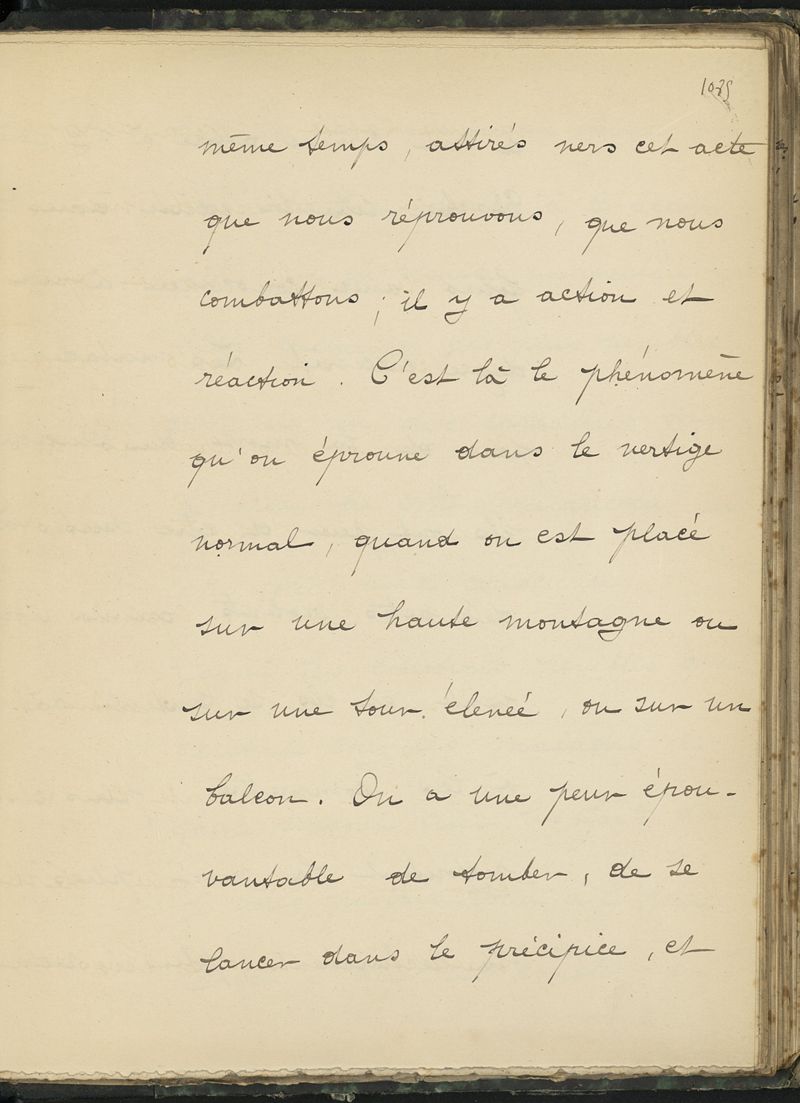 même temps, attirés vers cet acte
que nous réprouvons, que nous
combattons; il y a action et
réaction. C'est là le phénomène
qu'on éprouve dans le vertige
normal, quand on est placé
sur une haute montagne ou
sur une tour élevée, ou sur un
balcon. On a une peur épou-
vantable de tomber, de se
lancer dans le précipice, et